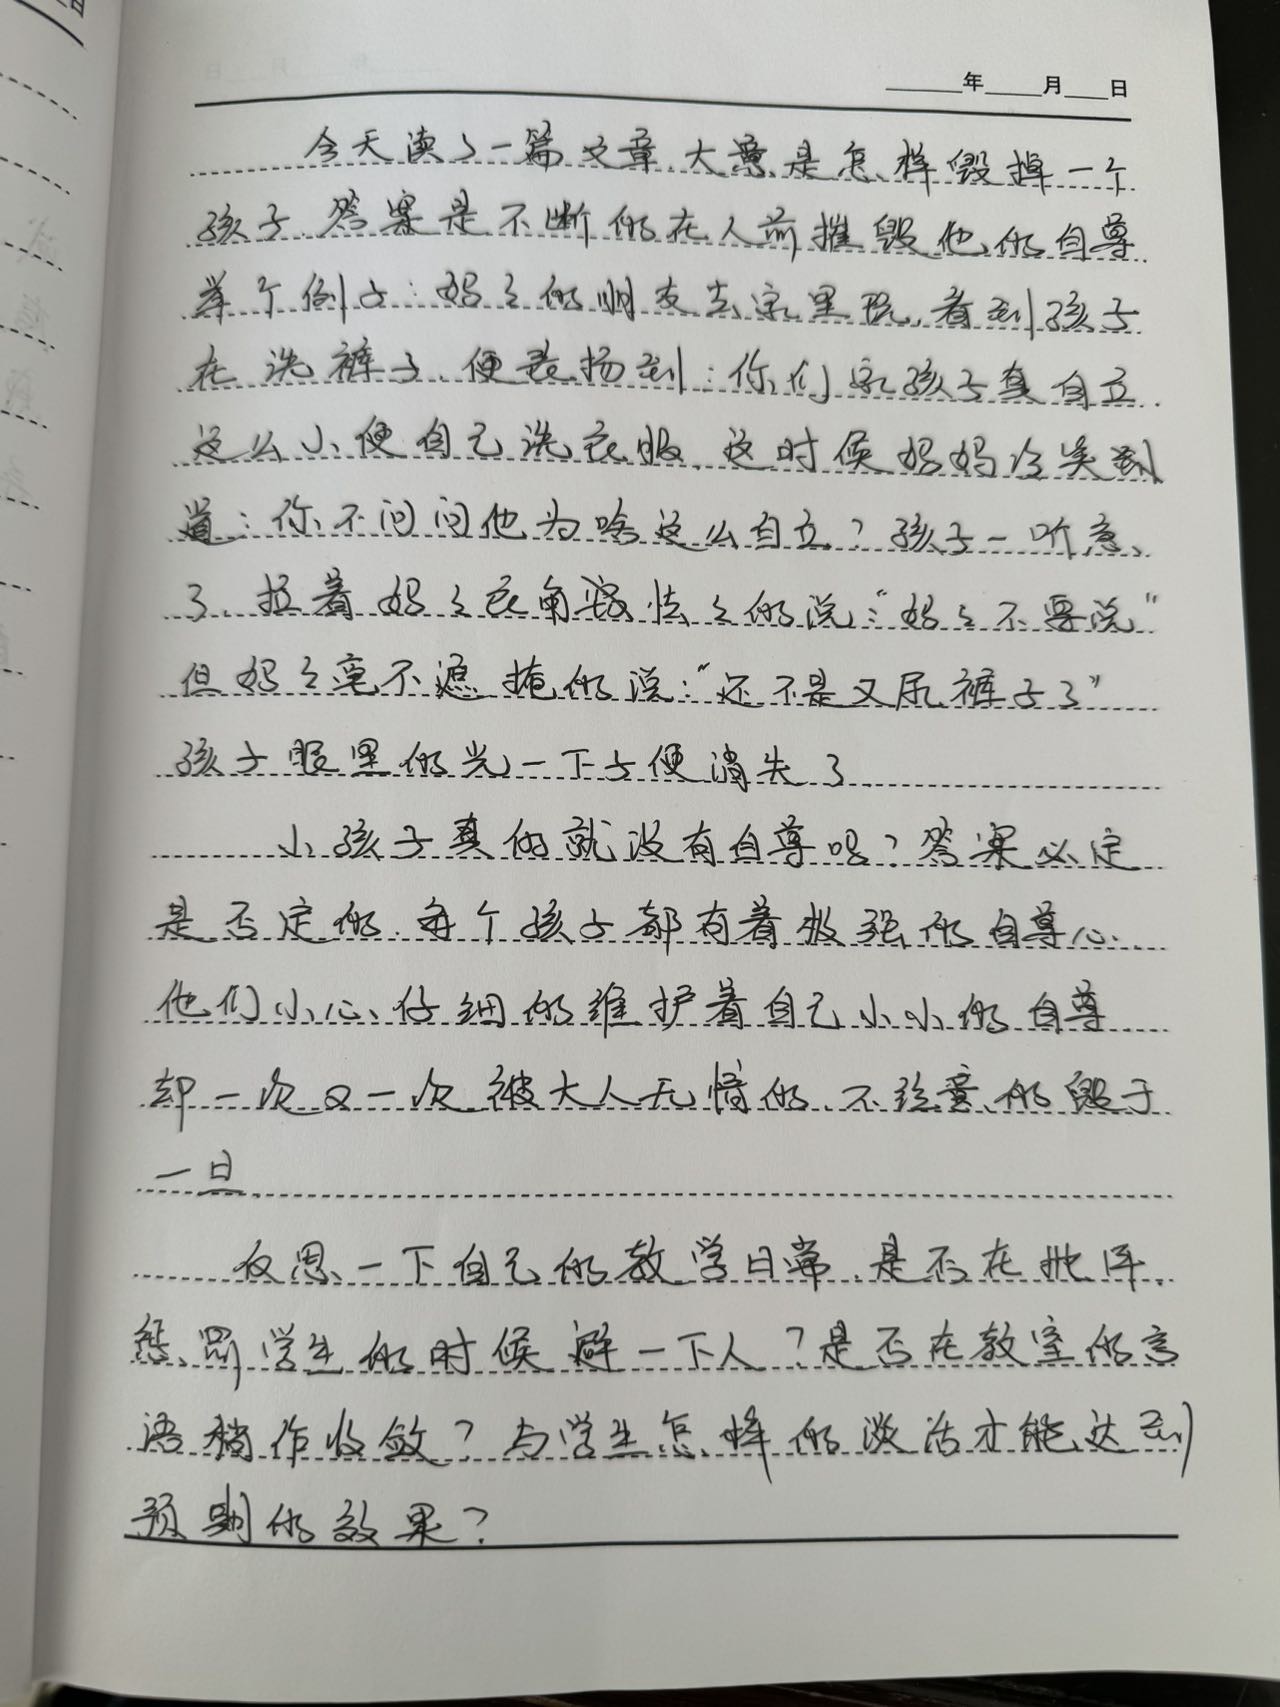 年 月 日
今天读了一篇文章,大意是怎样毁掉一个
孩子.答案是不断的在人前摧毁他的自尊
举个例子:妈々的朋友去家里玩,看到孩子
在洗裤子.便表扬到:你们家孩子真自立.
这么小便自己洗衣服.这时候妈妈冷笑
道:你不问问他为啥这么自立?孩子一听急
了.拉着妈々衣角 怯々的说:“妈々不要说”
但妈々毫不遮掩的说:“还不是又尿裤子了”
孩子眼里的光一下子便消失了
小孩子真的就没有自尊吗?答案必定
是否定的.每个孩子都有着极强的自尊心.
他们小心仔细的维护着自己小小的自尊
却一次又一次被大人无情的.不经意的毁于
一旦.
反思一下自己的教学日常.是否在批评.
惩罚学生的时候避一下人?是否在教室的言
语稍作收敛?与学生怎样的谈话才能达到
预期的效果?